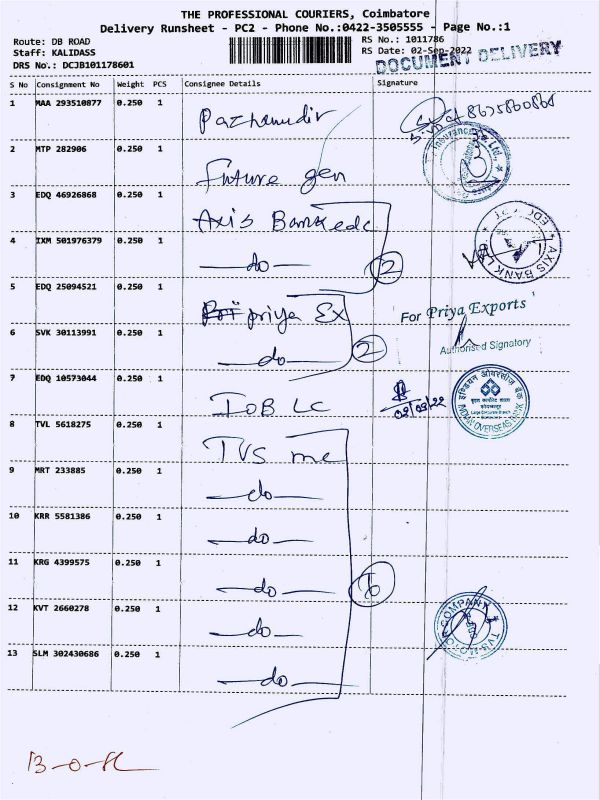 THE PROFESSIONAL COURIERS, Coimbatore
Delivery Runsheet - PC2 - Phone No.:0422-3505555 - Page No.:1
Route: DB ROAD RS No.: 1011786
Staff: KALIDASS RS Date: 02-Sep-2022
DRS No.: DCJB101178601 DOCUMENT DELIVERY
S No Consignment No Weight PCS Consignee Details Signature
1 MAA 293510877 0.250 1 Pazhamudir
2 MTP 282906 0.250 1 Future gen
3 EDQ 46926868 0.250 1 Axis Bank edc
4 IXM 501976379 0.250 1 -do- 2 AXIS BANK
5 EDQ 25094521 0.250 1 priya Ex For Priya Exports
6 SVK 30113991 0.250 1 -do- 2 Authorised Signatory
7 EDQ 10573044 0.250 1 IOB LC 02/09/22 इण्डियन ओवरसीज़ बैंक INDIAN OVERSEAS BANK
8 TVL 5618275 0.250 1 TVS me
9 MRT 233885 0.250 1 -do-
10 KRR 5581386 0.250 1 -do-
11 KRG 4399575 0.250 1 -do- 6
12 KVT 2660278 0.250 1 -do- COMPANY
13 SLM 302430686 0.250 1 -do-